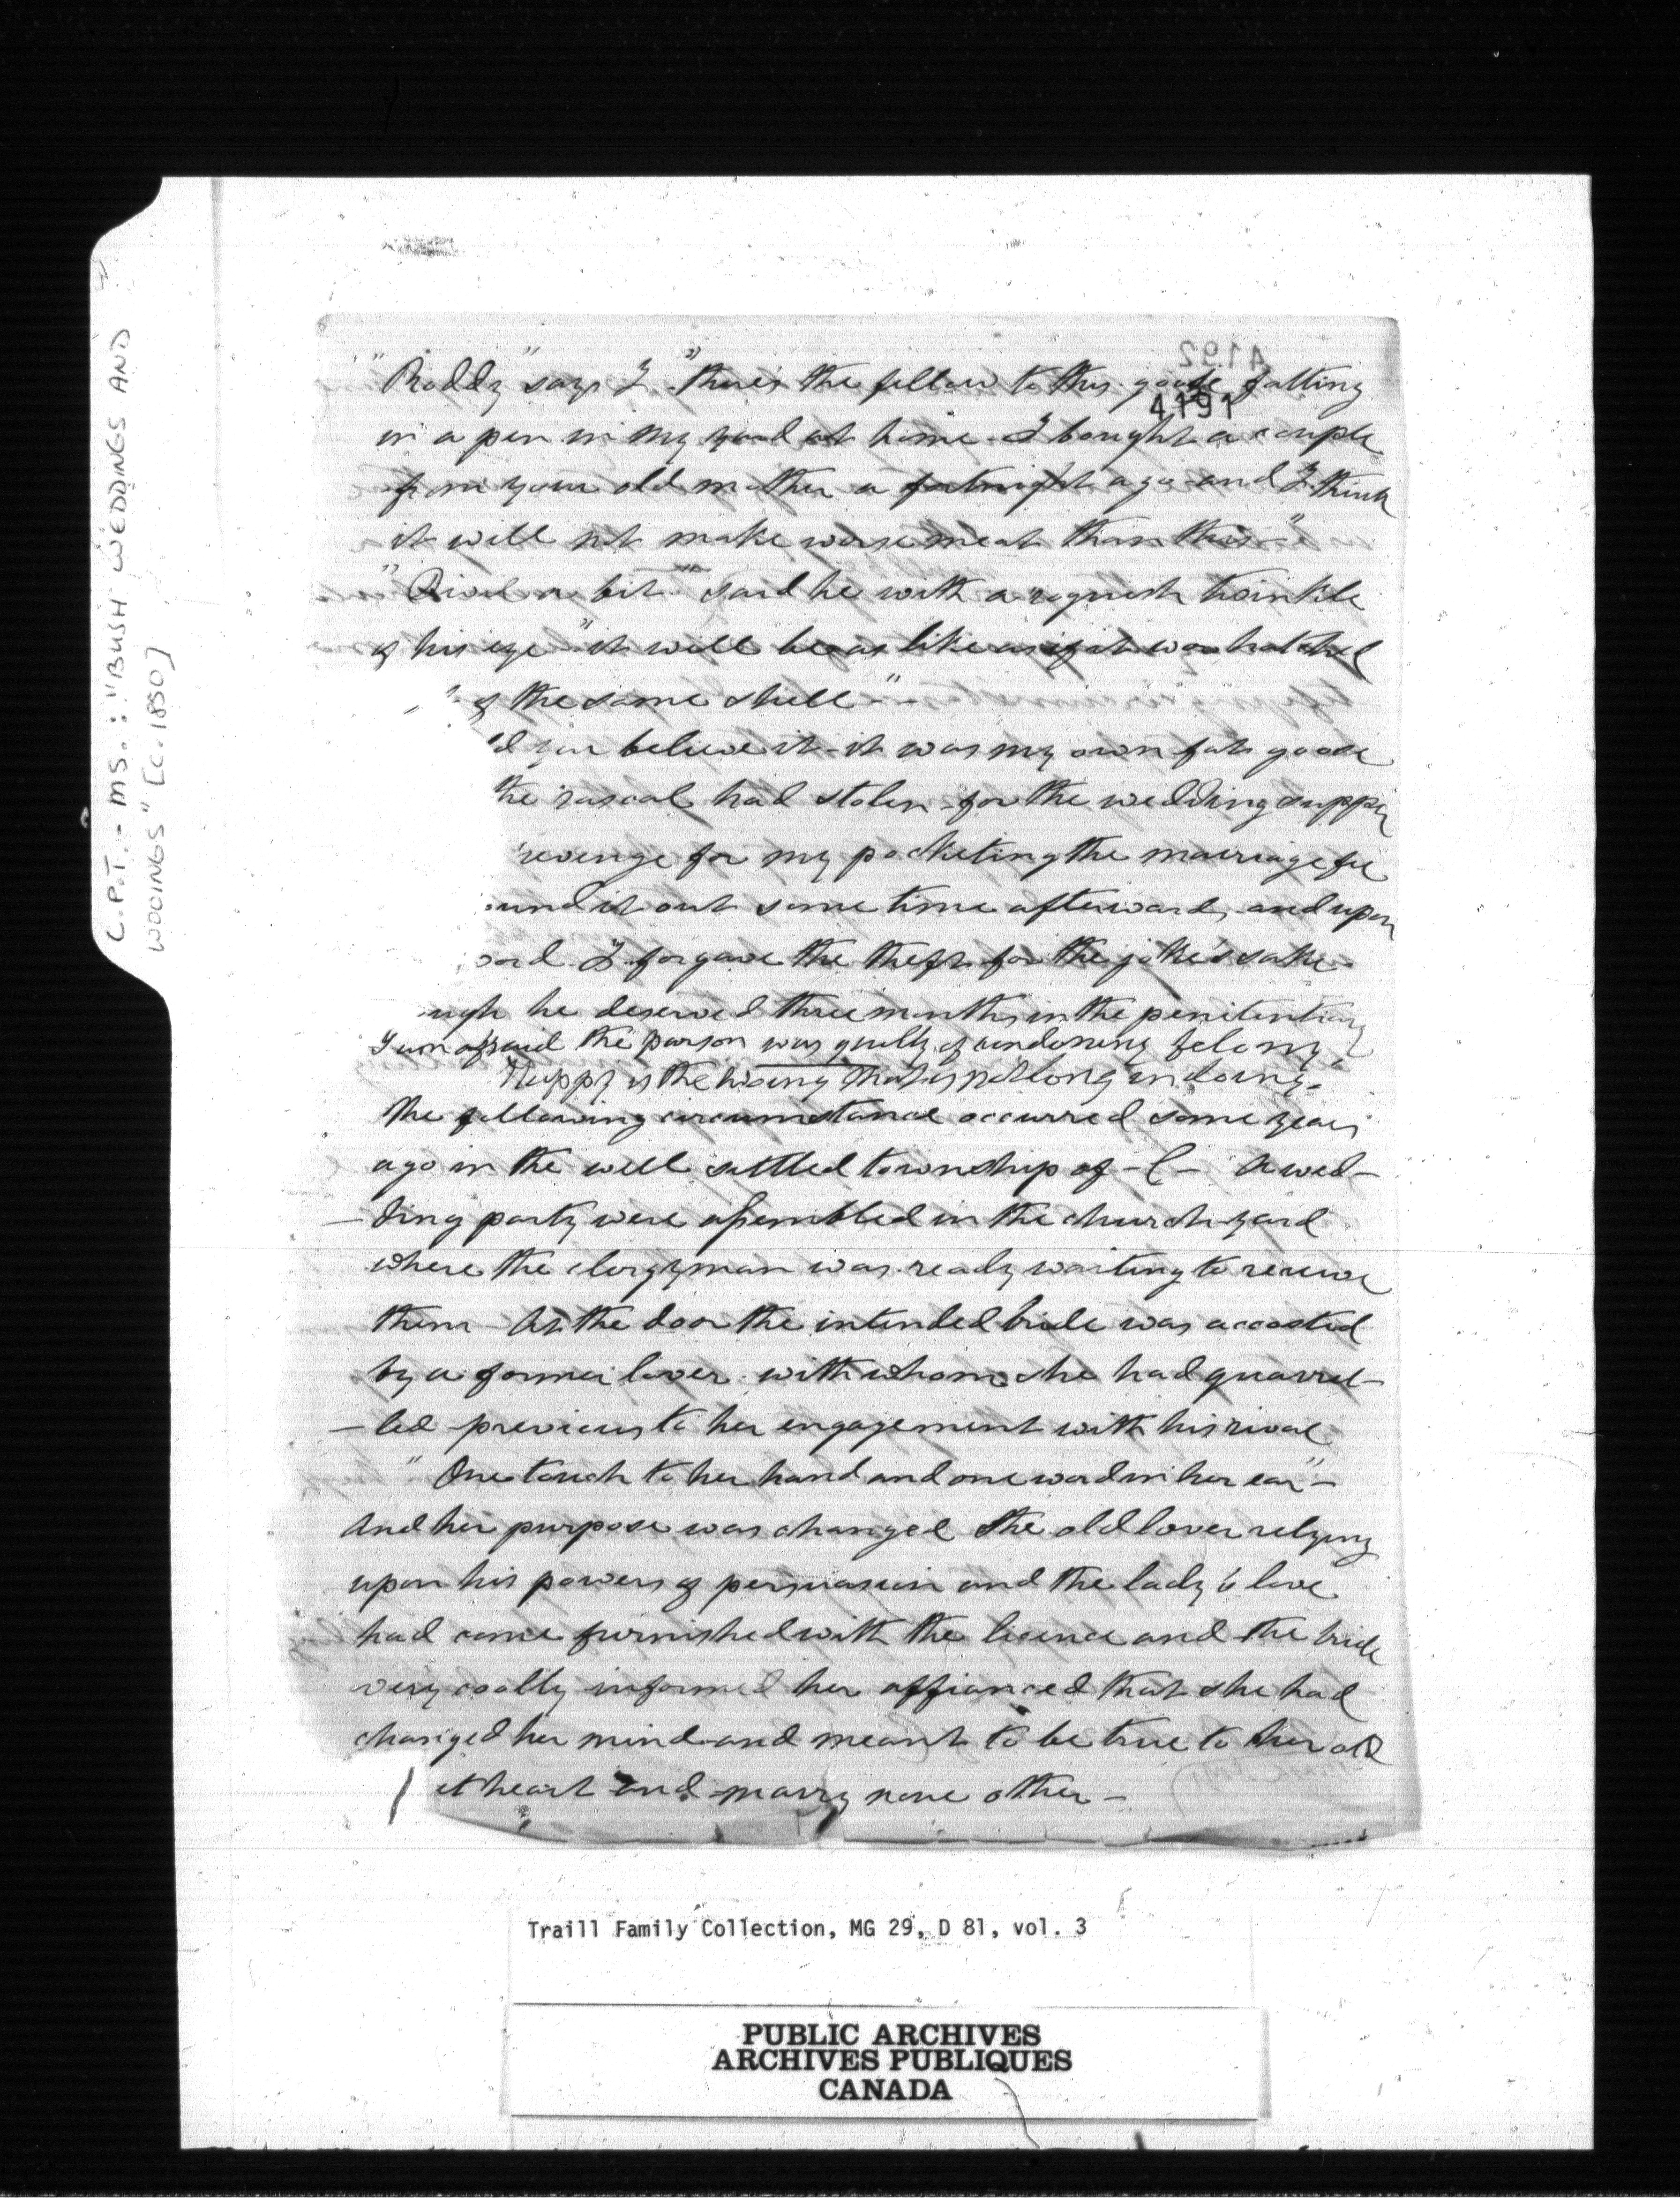 C.P.T. - MS.: "BUSH WEDDINGS AND
WOOINGS" [c. 1850]
4192
4191
"Roddy" says I "there's the fellow to this goose fatting
in a pen in my yard at home - I bought a couple
from your old mother a fortnight ago and I think
it will not make worse meat than this -"
"Divil a bit" said he with a roguish twinkle
of his eye "it will be as like as if it was hatched
of the same shell -"
'd you believe it - it was my own fat goose
the rascal had stolen for the wedding supper
revenge for my pocketing the marriage fee
ound it out some time afterwards and upon
ord I forgave the theft for the joke's sake -
ugh he deserved three months in the penitentiary
I am afraid the parson was guilty of condoning felony.
Happy is the wooing that is not long in doing.
The following circumstance occurred some years
ago in the well settled township of - C - A wed-
-ding party were assembled in the church-yard
where the clergyman was ready waiting to receive
them - At the door the intended bride was accosted
by a former lover with whom she had quarrel-
-led previous to her engagement with his rival
"One touch to her hand and one word in her ear" -
And her purpose was changed the old lover relying
upon his powers of persuasion and the lady's love
had come furnished with the licence and the bride
very coolly informed her affianced that she had
changed her mind and meant to be true to her old
etheart and marry none other -
Traill Family Collection, MG 29, D 81, vol. 3
PUBLIC ARCHIVES
ARCHIVES PUBLIQUES
CANADA